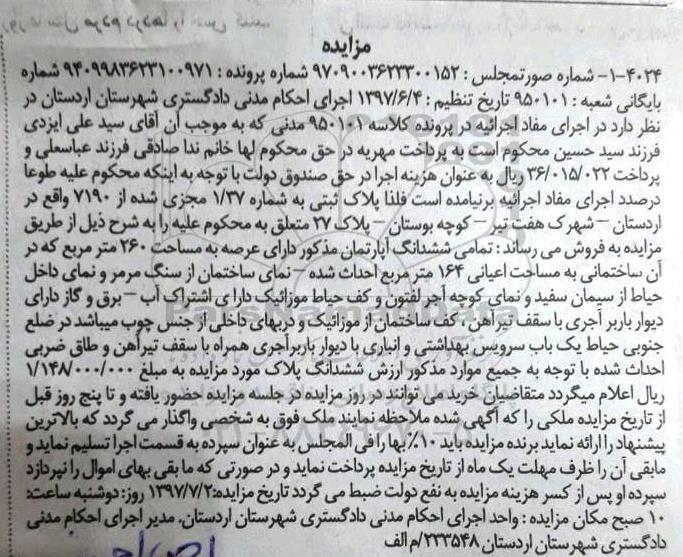 مزایده
۱-۴۰۲۴- شماره صورتمجلس : ۹۷۰۹۰۰۳۶۲۳۳۰۰۱۵۲ شماره پرونده : ۹۴۰۹۹۸۳۶۲۳۱۰۰۹۷۱ شماره
بایگانی شعبه : ۹۵۰۱۰۱ تاریخ تنظیم : ۱۳۹۷/۶/۴ اجرای احکام مدنی دادگستری شهرستان اردستان در
نظر دارد در اجرای مفاد اجرائیه در پرونده کلاسه ۹۵۰۱۰۱ مدنی که به موجب آن آقای سید علی ایزدی
فرزند سید حسین محکوم است به پرداخت مهریه در حق محکوم لها خانم ندا صادقی فرزند عباسعلی و
پرداخت ۳۶/۰۱۵/۰۲۲ ریال به عنوان هزینه اجرا در حق صندوق دولت با توجه به اینکه محکوم علیه طوعا
درصدد اجرای مفاد اجرائیه برنیامده است فلذا پلاک ثبتی به شماره ۱/۳۷ مجزی شده از ۷۱۹۰ واقع در
اردستان – شهرک هفت تیر – کوچه بوستان – پلاک ۲۷ متعلق به محکوم علیه را به شرح ذیل از طریق
مزایده به فروش می رساند : تمامی ششدانگ آپارتمان مذکور دارای عرصه به مساحت ۲۶۰ متر مربع که در
آن ساختمانی به مساحت اعیانی ۱۶۴ متر مربع احداث شده – نمای ساختمان از سنگ مرمر و نمای داخل
حیاط از سیمان سفید و نمای کوچه آجر لفتون و کف حیاط موزائیک دارا ی اشتراک آب – برق و گاز دارای
دیوار باربر آجری با سقف تیر آهن ، کف ساختمان از موزائیک و دربهای داخلی از جنس چوب میباشد در ضلع
جنوبی حیاط یک باب سرویس بهداشتی و انباری با دیوار باربر آجری همراه با سقف تیرآهن و طاق ضربی
احداث شده با توجه به جمیع موارد مذکور ارزش ششدانگ پلاک مورد مزایده به مبلغ ۱/۱۴۸/۰۰۰/۰۰۰
ریال اعلام میگردد متقاضیان خرید می توانند در روز مزایده در جلسه مزایده حضور یافته و تا پنج روز قبل
از تاریخ مزایده ملکی را که آگهی شده ملاحظه نمایند ملک فوق به شخصی واگذار می گردد که بالاترین
پیشنهاد را ارائه نماید برنده مزایده باید ۱۰٪ بها را فی المجلس به عنوان سپرده به قسمت اجرا تسلیم نماید و
مابقی آن را ظرف مهلت یک ماه از تاریخ مزایده پرداخت نماید و در صورتی که ما بقی بهای اموال را نپردازد
سپرده او پس از کسر هزینه مزایده به نفع دولت ضبط می گردد تاریخ مزایده: ۱۳۹۷/۷/۲ روز: دوشنبه ساعت:
۱۰ صبح مکان مزایده : واحد اجرای احکام مدنی دادگستری شهرستان اردستان. مدیر اجرای احکام مدنی
دادگستری شهرستان اردستان ۲۳۳۵۴۸/م الف